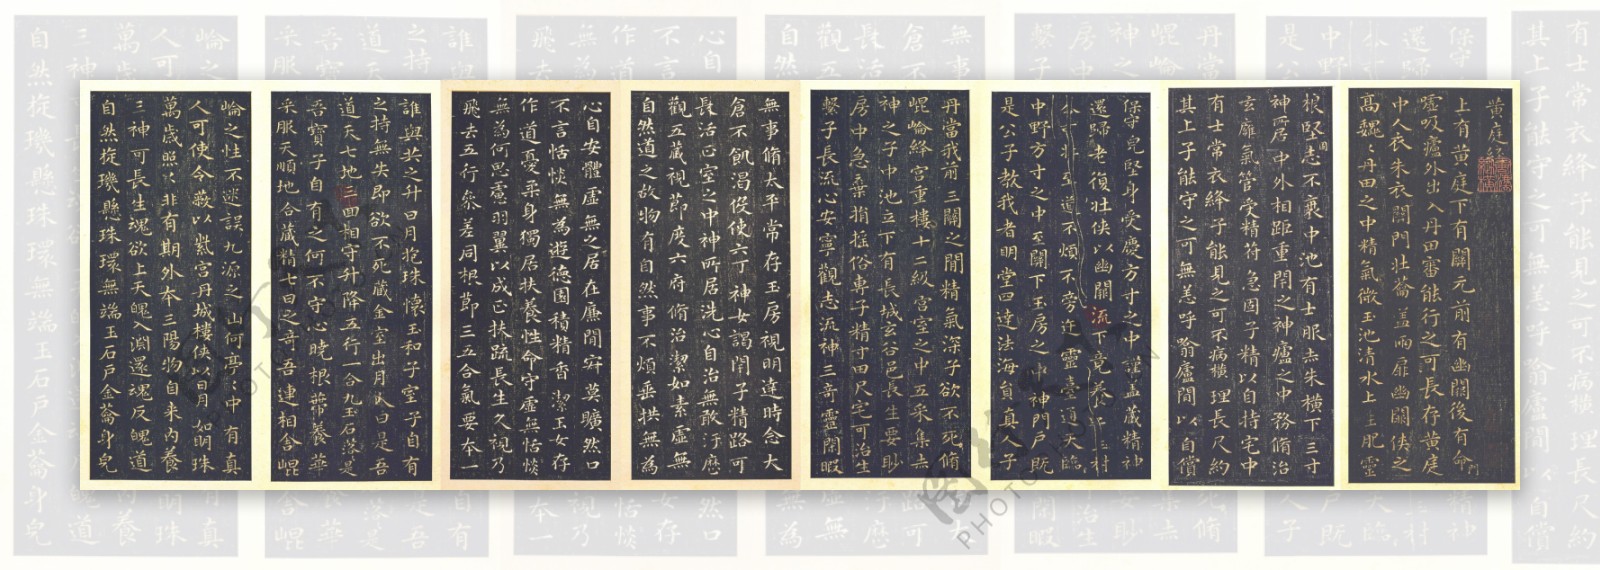 黄庭經
上有黄庭下有關元前有幽闕後有命門
噓吸廬外出入丹田審能行之可長存黄庭
中人衣朱衣關門壯籥蓋兩扉幽闕俠之
高魏〻丹田之中精氣微玉池清水上生肥靈
根堅志不衰中池有士服赤朱橫下三寸
神所居中外相距重閇之神廬之中務脩治
玄廱氣管受精符急固子精以自持宅中
有士常衣絳子能見之可不病橫理長尺約
其上子能守之可無恙呼噏廬間以自償
保守皃堅身受慶方寸之中謹蓋藏精神
還歸老復壯俠以幽闕流下竟養子玉樹
不可杖至道不煩不旁迕靈臺通天臨
中野方寸之中至關下玉房之中神門戶既
是公子教我者明堂四達法海員真人子
丹當我前三關之間精氣深子欲不死脩
崐崘絳宫重樓十二級宫室之中五采集赤
神之子中池立下有長城玄谷邑長生要眇
房中急棄捐搖俗專子精寸田尺宅可治生
繫子長流心安寧觀志流神三奇靈閑暇
無事脩太平常存玉房視明達時念大
倉不飢渴役使六丁神女謁閇子精路可
長活正室之中神所居洗心自治無敢汙歷
觀五藏視節度六府脩治潔如素虛無
自然道之故物有自然事不煩垂拱無為
心自安體虛無之居在廉間寂莫曠然口
不言恬惔無為遊德園積精香潔玉女存
作道憂柔身獨居扶養性命守虛無恬惔
無為何思慮羽翼以成正扶疏長生久視乃
飛去五行參差同根節三五合氣要本一
誰與共之升日月抱珠懷玉和子室子自有
之持無失即欲不死藏金室出月入日是吾
道天七地三回相守升降五行一合九玉石落〻是
吾寶子自有之何不守心曉根蔕養華
采服天順地合藏精七日之奇吾連相舍崐
崘之性不迷誤九源之山何亭〻中有真
人可使令蔽以紫宫丹城樓俠以日月如明珠
萬歲照〻非有期外本三陽物自来内養
三神可長生魂欲上天魄入淵還魂反魄道
自然旋璣懸珠環無端玉石戶金籥身皃